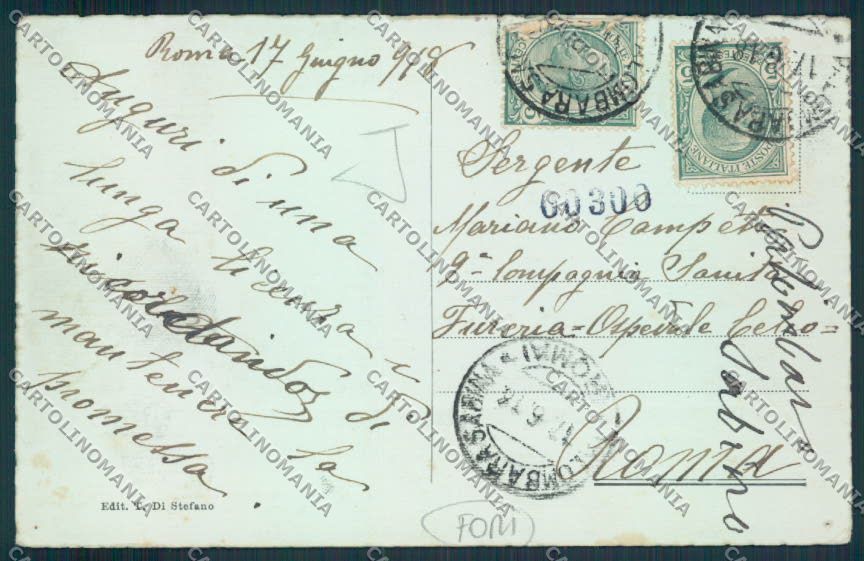 Roma, 17 Giugno 918
Auguri di una
lunga licenza e di
ricordandosi
mantenere la
promessa
Edit. T. Di Stefano
Sergente
00300
Mariano Campet
9ª Compagnia Sanità
Fureria=Ospedale Celio=
Roma
Palombara
Sabina
POSTE ITALIANE
PALOMBARA SABINA (ROMA)
FOM
CARTOLINOMANIA